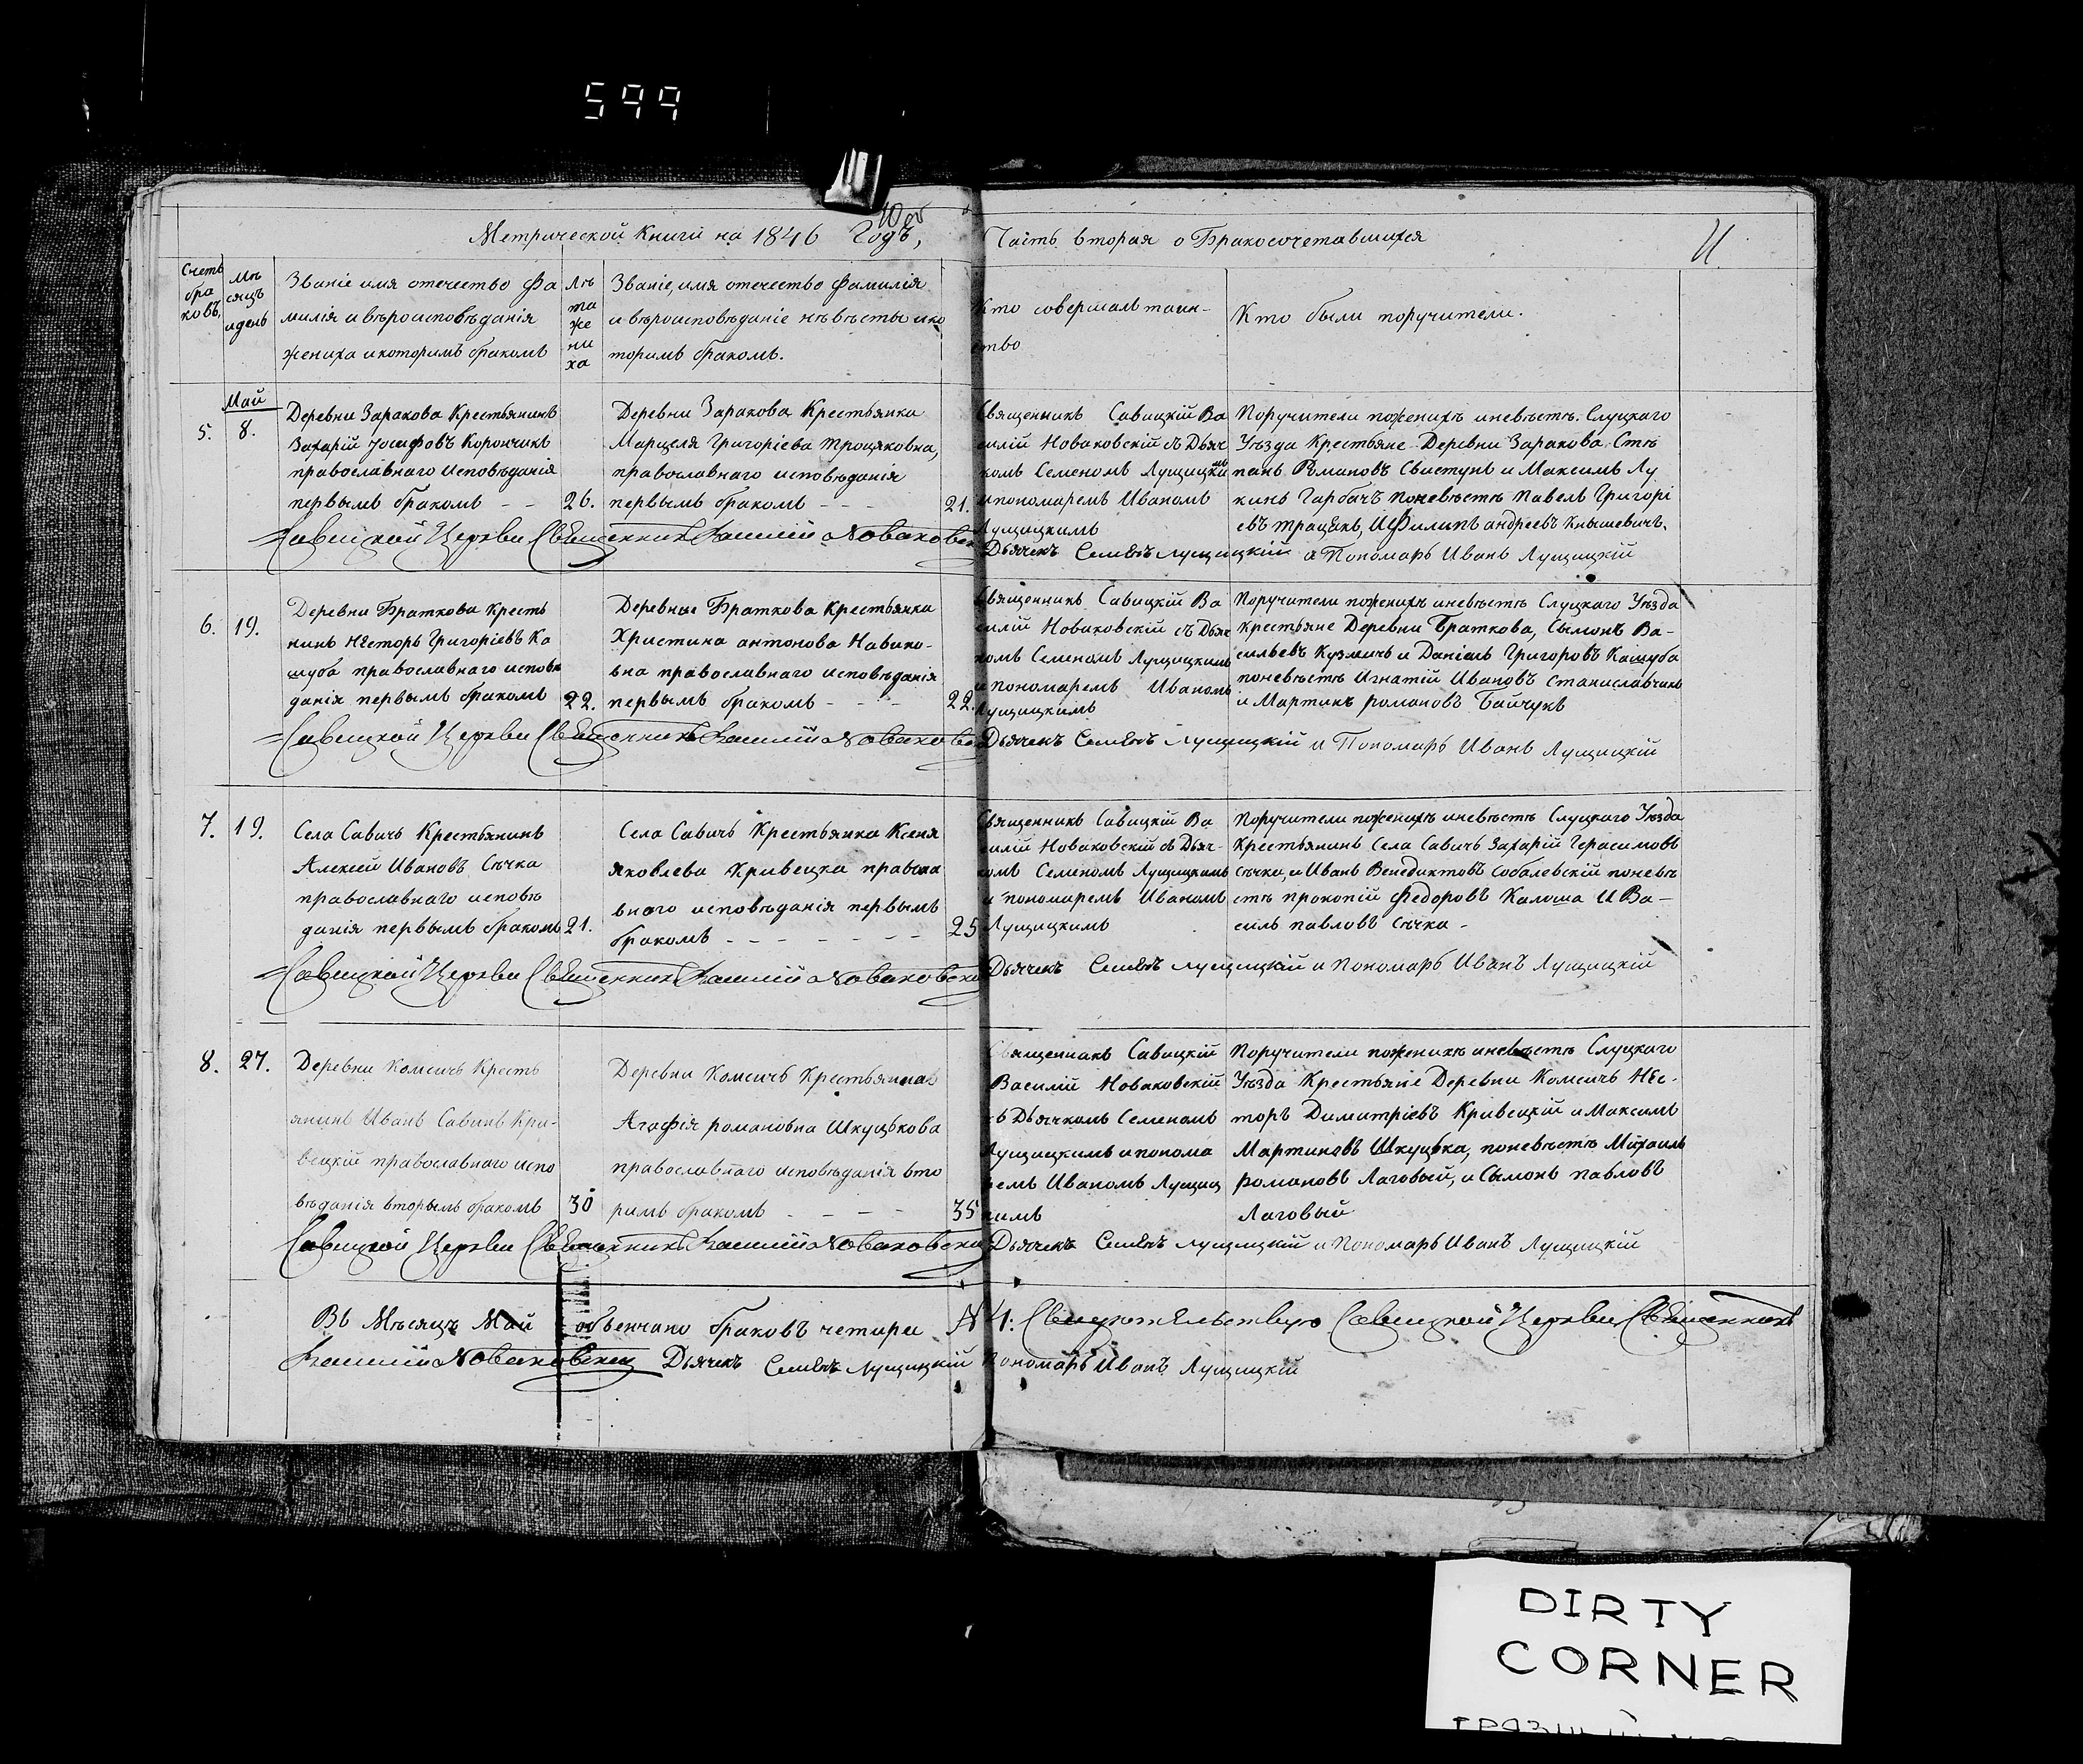 599
10 об
Метрической Книги на 1846 Годъ,
Часть вторая о Бракосочетавшихся
11
Счетъ
бра
ковъ,
Мѣ
сяцъ
и день
Званіе имя отечество фа
милія и вѣроисповѣданія
жениха и которимъ бракомъ
Лѣ
та
же
ни
ха
Званіе, имя отечество фамилія
и вѣроисповѣданіе невѣсты и ко
торимъ бракомъ.
Кто совершалъ таин-
ство
Кто были поручители.
Май
5.
8.
Деревни Заракова Крестьянинъ
Захарій Іосифовъ Корончикъ
православнаго исповѣданія
первымъ бракомъ - -
26.
Деревни Заракова Крестьянка
Марцеля Григоріева Троцяковна,
православнаго исповѣданія
первымъ бракомъ - - -
21.
Священникъ Савицкій Ва
силій Новаковскій съ Дьяч
комъ Семеномъ Лущицким
ипономаремъ Иваномъ
Лущицкимъ
Поручители поженихѣ иневѣстѣ. Слуцкаго
Уѣзда Крестьяне Деревни Заракова Сте
панъ Романовъ Свистунъ и Максимъ Лу
кинъ Гарбачъ поневѣстѣ Павелъ Григорі
евъ трацякъ, И Филипъ андреевъ Кнышевичъ.
Савицкой Церкви Священникъ Василій Новаковскій
Дьячекъ Семенъ Лущицкій а Пономарь Иванъ Лущицкій
6.
19.
Деревни Браткова Кресть
нинъ Несторъ Григоріевъ Ка
шуба православнаго исповѣ
данія первымъ бракомъ
22.
Деревни Браткова Крестьянка
Христина антонова Новико-
вна православнаго исповѣданія
первымъ бракомъ - - -
22.
Священникъ Савицкій Ва
силій Новаковскій съ Дьяч
комъ Семеномъ Лущицкимъ
и пономаремъ Иваномъ
Лущицкимъ
Поручители поженихѣ иневѣстѣ Слуцкаго Уѣзда
крестьяне Деревни Браткова, Сымонъ Ва-
сильевъ Кузмичъ и Даніелъ Григоровъ Кашуба
поневѣстѣ Игнатій Ивановъ Станиславчикъ
и Мартинъ романовъ Байчукъ
Савицкой Церкви Священникъ Василій Новаковскій
Дьячекъ Семенъ Лущицкій и Пономарь Иванъ Лущицкій
7.
19.
Села Савичъ Крестьянинъ
Алексей Ивановъ Сѣчка
православнаго исповѣ
данія первымъ бракомъ
21.
Села Савичъ Крестьянка Ксеня
яковлева Кривецка правосла
внаго исповѣданія первымъ
бракомъ - - - - - - -
25
Священникъ Савицкій Ва
силій Новаковскій съ Дьяч-
комъ Семеномъ Лущицкимъ
и пономаремъ Иваномъ
Лущицкимъ
Поручители поженихѣ иневѣстѣ Слуцкаго Уѣзда
Крестьянинъ Села Савичъ Захарій Герасимовъ
Сѣчка, и Иванъ Венедиктовъ Соболевскій поневѣ
стѣ прокопій Федоровъ Калоша И Ва-
силь павловъ Сѣчка -
Савицкой Церкви Священникъ Василій Новаковскій
Дьячекъ Семенъ Лущицкій и Пономарь Иванъ Лущицкій
8.
27.
Деревни Комсичъ Кресть
янинъ Иванъ Савинъ Кри-
вецкій православнаго испо
вѣданія вторымъ бракомъ
30
Деревни Комсичъ Крестьянка
Агафія романовна Шкуцькова
православнаго исповѣданія вто
римъ бракомъ - - - -
35
Священникъ Савицкій
Василій Новаковскій
съ Дьячкомъ Семеномъ
Лущицкимъ ипонома
ремъ Иваномъ Лущиц
кимъ
Поручители поженихѣ иневѣстѣ Слуцкаго
Уѣзда Крестьяне Деревни Комсичъ Нес-
торъ Димитріевъ Кривецкій и Максимъ
Мартиновъ Шкуцька, поневѣстѣ Михаилъ
романовъ Лаговый, и Сымонъ павловъ
Лаговый
Савицкой Церкви Священникъ Василій Новаковскій
Дьячекъ Семенъ Лущицкій и Пономарь Иванъ Лущицкій
Въ Мѣсяцѣ Май обвенчано браковъ четири № 4: Свидѣтельствую Савицкой Церкви Священникъ
Василій Новаковскій Дьячекъ Семенъ Лущицкій Пономарь Иванъ Лущицкій
DIRTY
CORNER